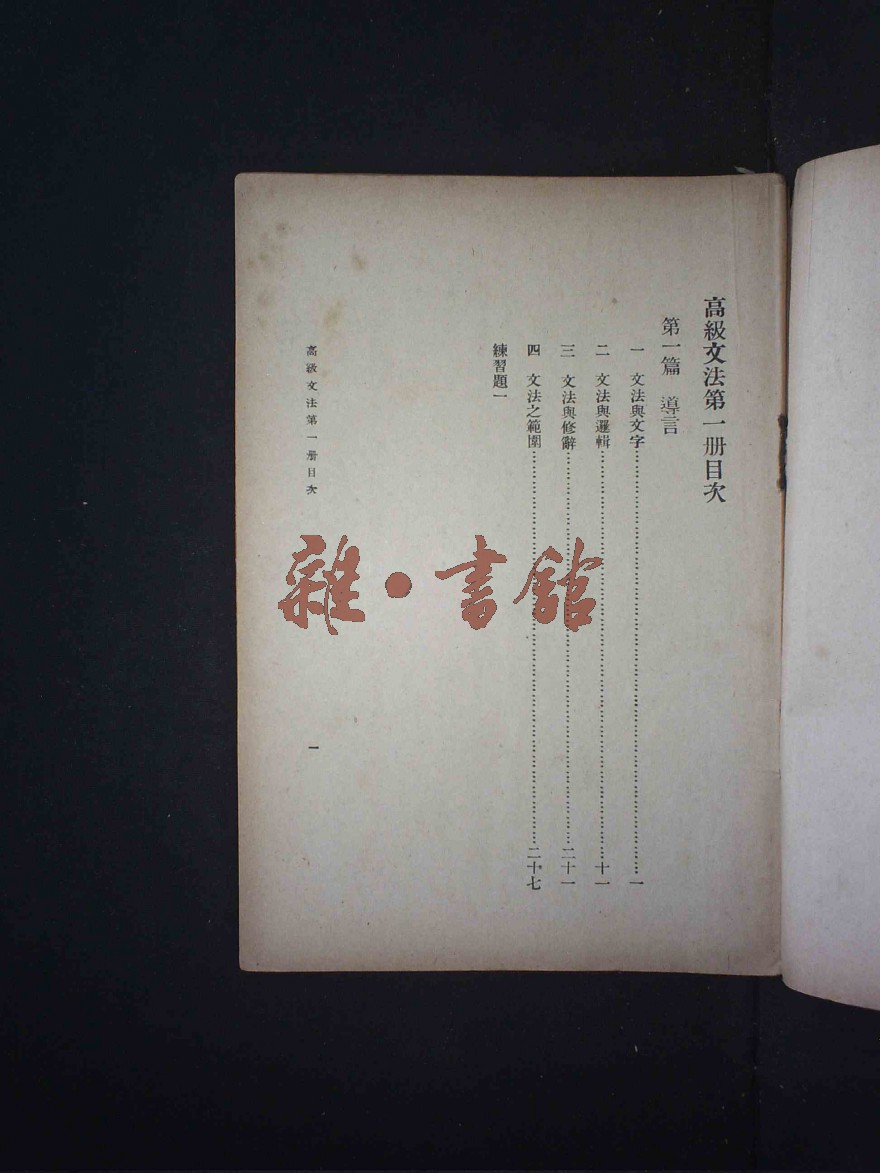 高級文法第一册目次
第一篇 導言
一 文法與文字……一
二 文法與邏輯……十一
三 文法與修辭……二十一
四 文法之範圍……二十七
練習題一
高級文法第一册目次
一
雜·書館